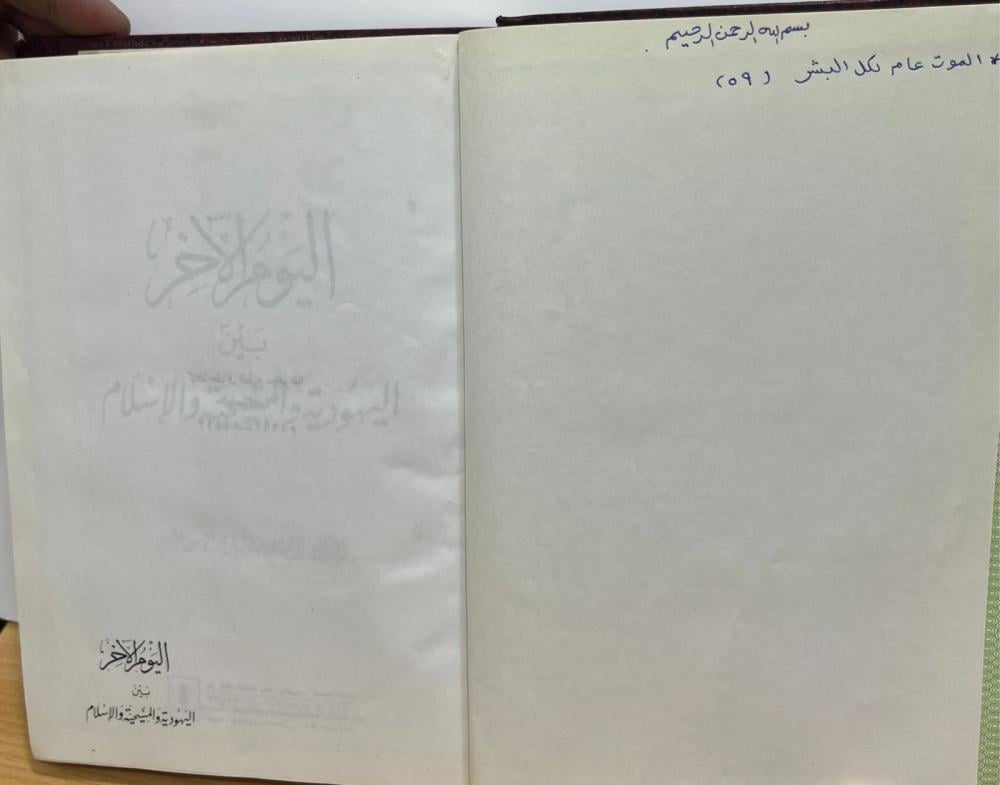 بسم الله الرحمن الرحيم
* الموت عام لكل البشر (٥٩)
اليوم الآخر
بين
اليهودية والمسيحية والإسلام
اليَوْمُ الآخِر
بَيْنَ
اليَهُودية والمسيحيَّة والإسْلَام